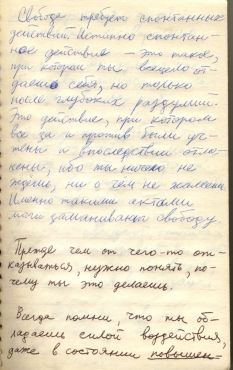 Свобода требует спонтанных
действий. Истинно спонтан-
ное действие – это такое,
при котором ты всецело от
даешь себя, но только
после глубоких раздумий.
Это действие, при котором
все за и против были уч-
тены и впоследствии отло-
жены, ибо ты ничего не
ждешь, ни о чем не жалеешь.
Именно такими актами
маги заманивают свободу.
Прежде чем от чего-то от-
казываться, нужно понять, по-
чему ты это делаешь.
Всегда помни, что ты об-
ладаешь силой воздействия,
даже в состоянии повышен-